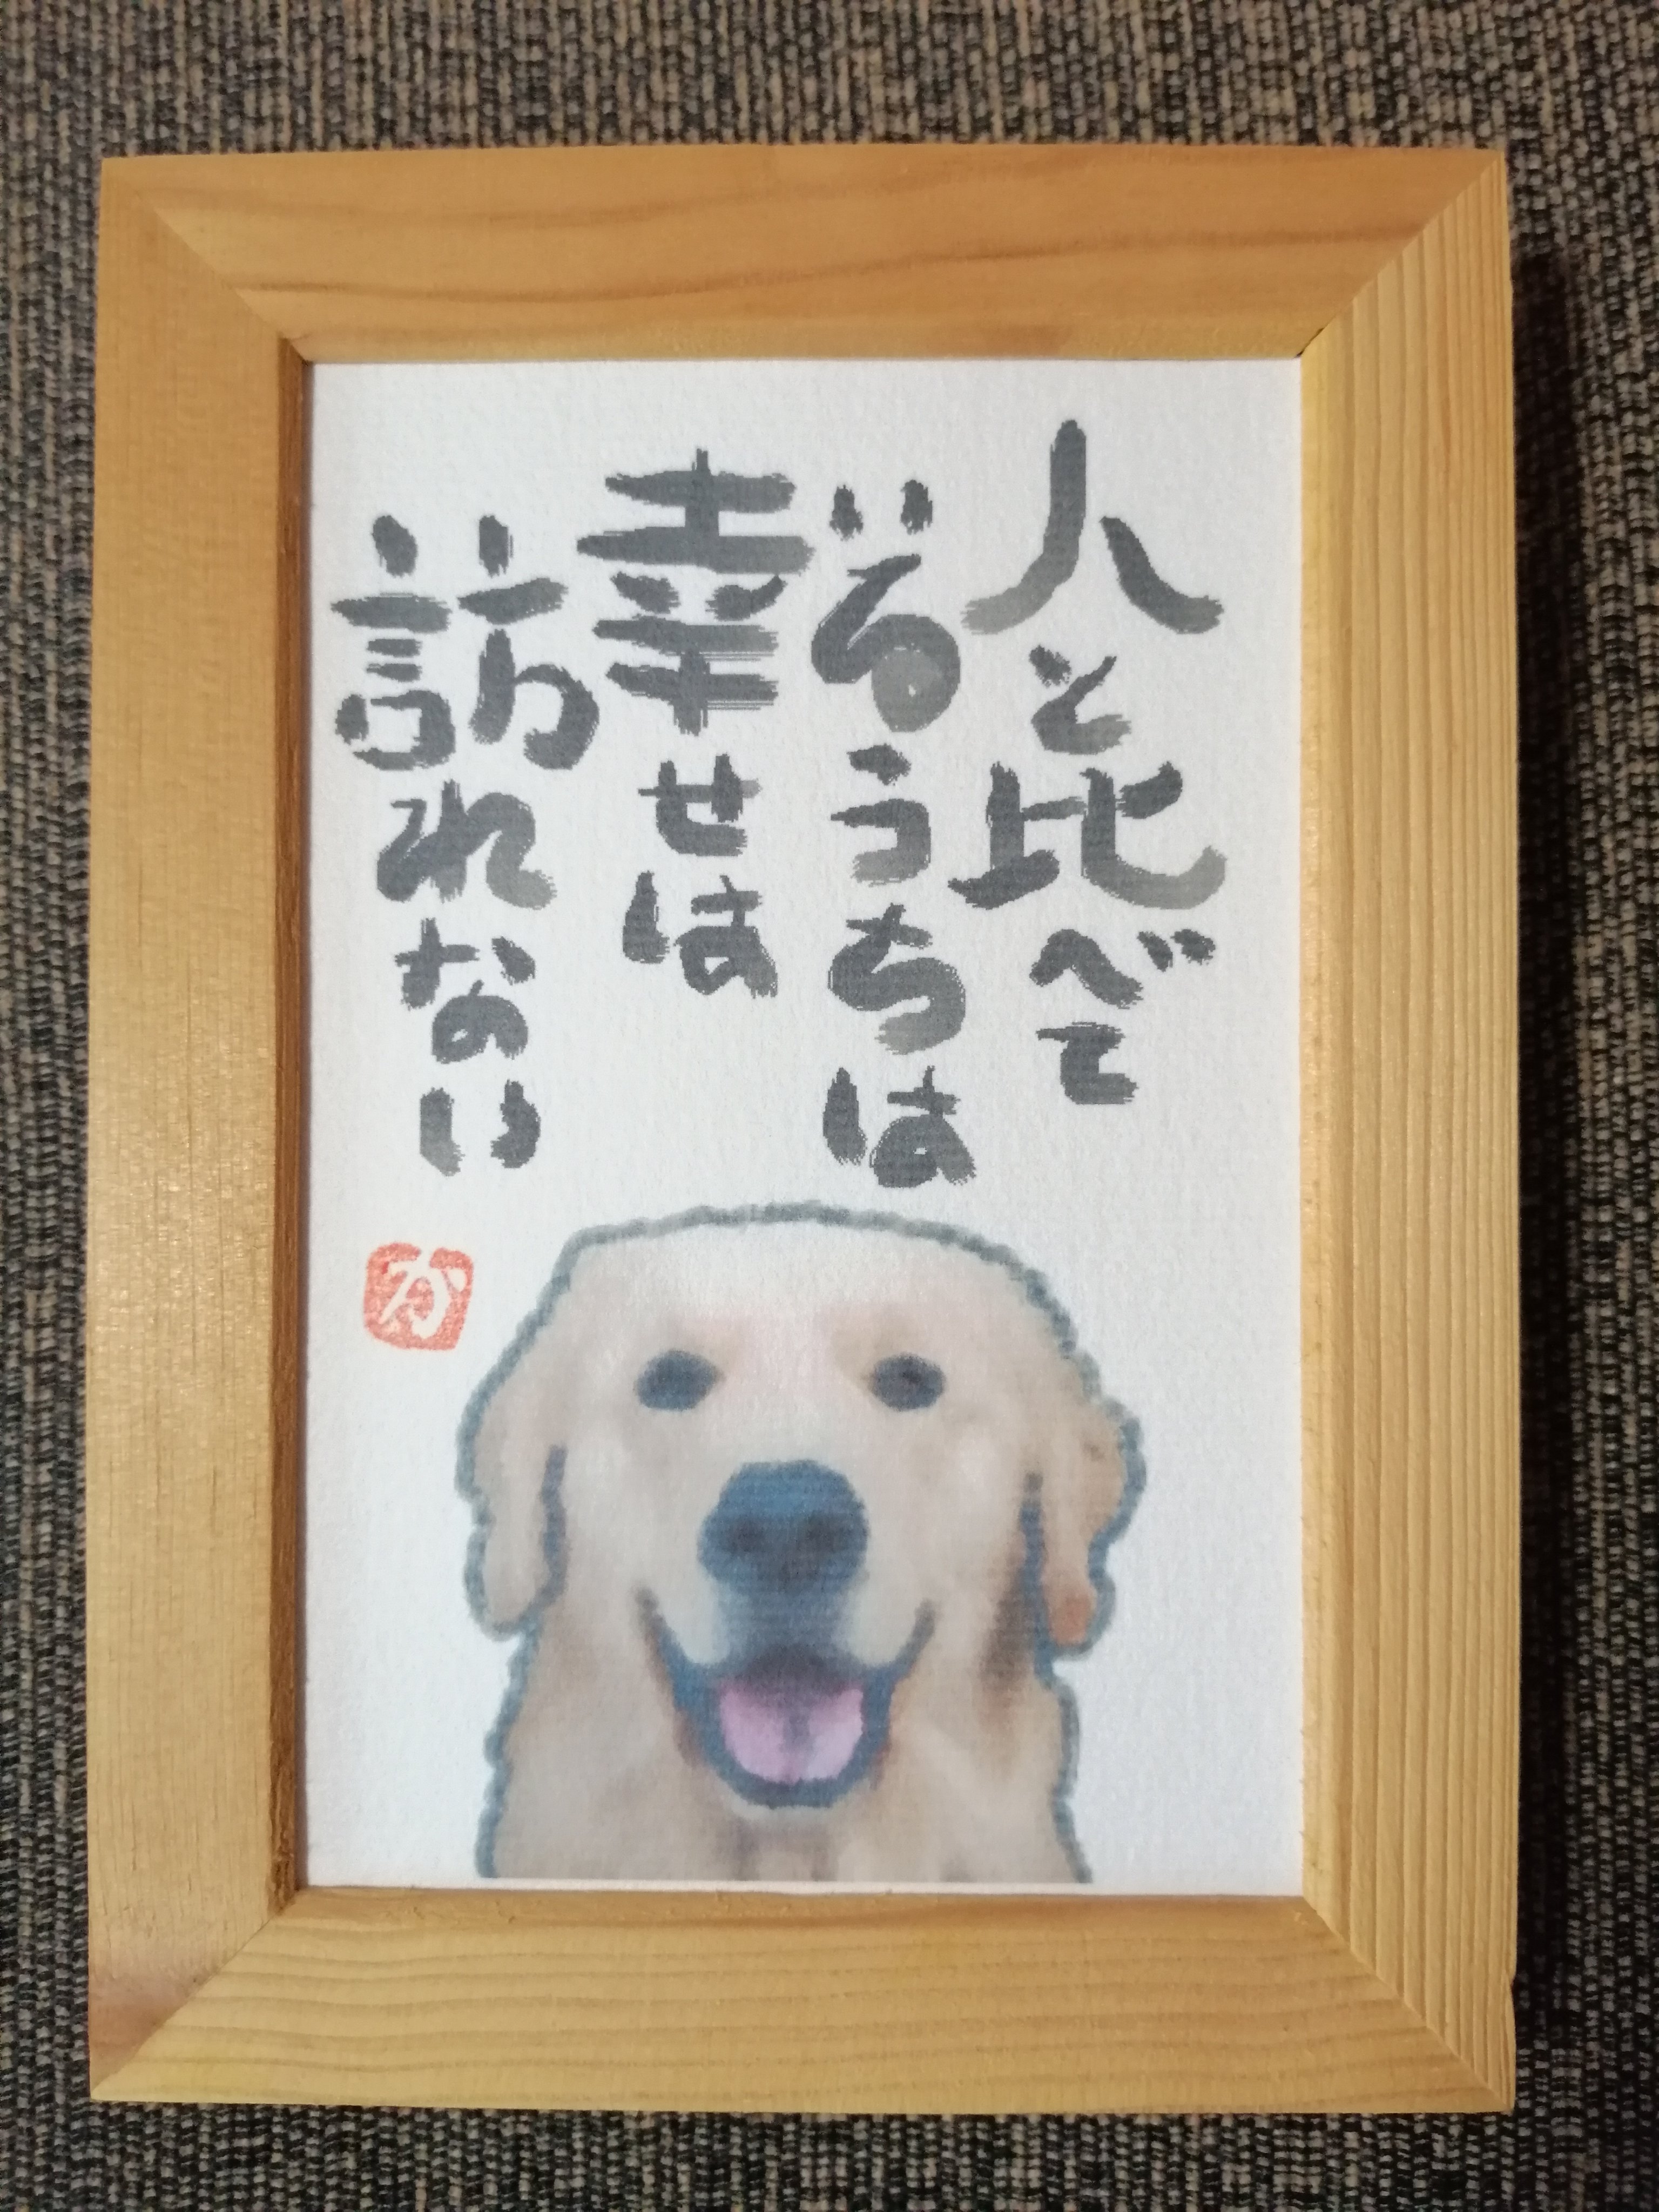 人と比べて
いるうちは
幸せは
訪れない
か